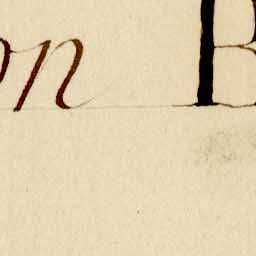 on B